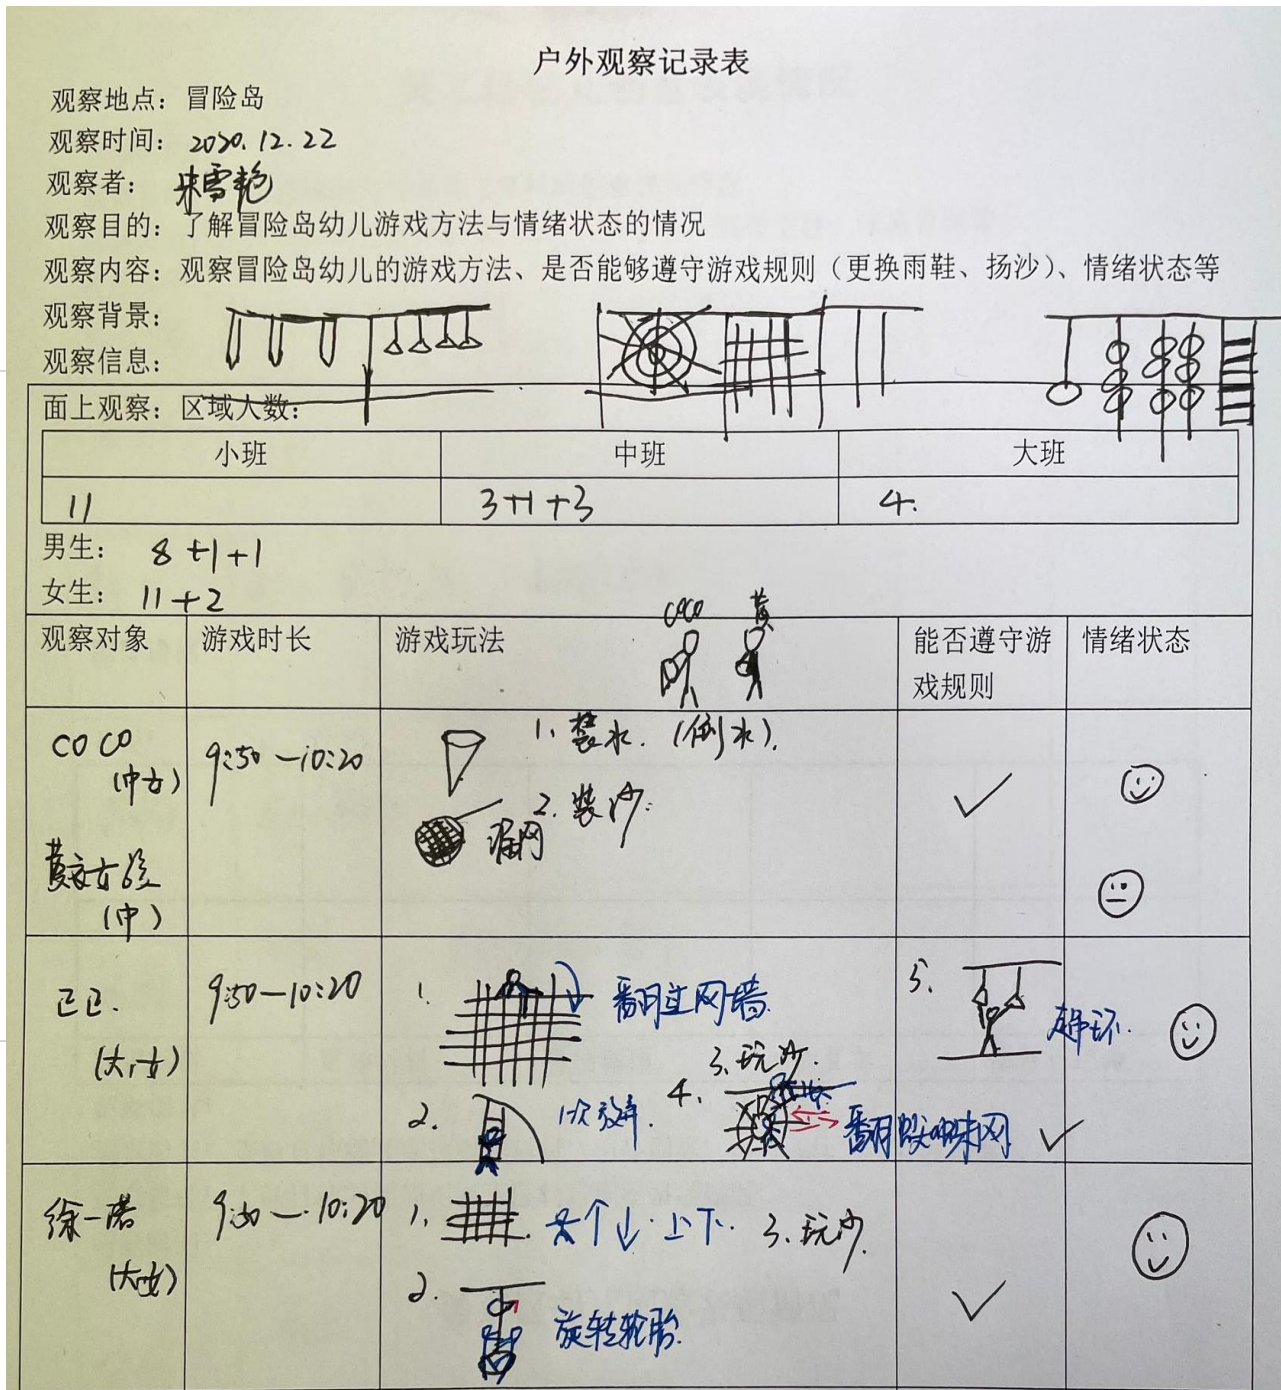 户外观察记录表
观察地点：冒险岛
观察时间：2020.12.22
观察者：朱雪艳
观察目的：了解冒险岛幼儿游戏方法与情绪状态的情况
观察内容：观察冒险岛幼儿的游戏方法、是否能够遵守游戏规则（更换雨鞋、扬沙）、情绪状态等
观察背景：
观察信息：
面上观察：区域人数：
小班 中班 大班
11 3+1+3 4.
男生： 8+1+1
女生： 11+2
coco 黄
观察对象 游戏时长 游戏玩法 能否遵守游戏规则 情绪状态
COCO
(中女)
9:50—10:20
1、装水.（倒水）.
2.装沙.
漏网
黄衣女孩
(中)
已已.
(大女)
9:50—10:20
1. 翻过网墙.
2. 1次放弃.
3、玩沙.
4、翻爬蜘蛛网
5、 吊环.
徐一诺
(大女)
9:50—10:20
1、 上下.
3、玩沙.
2. 旋转轮胎.